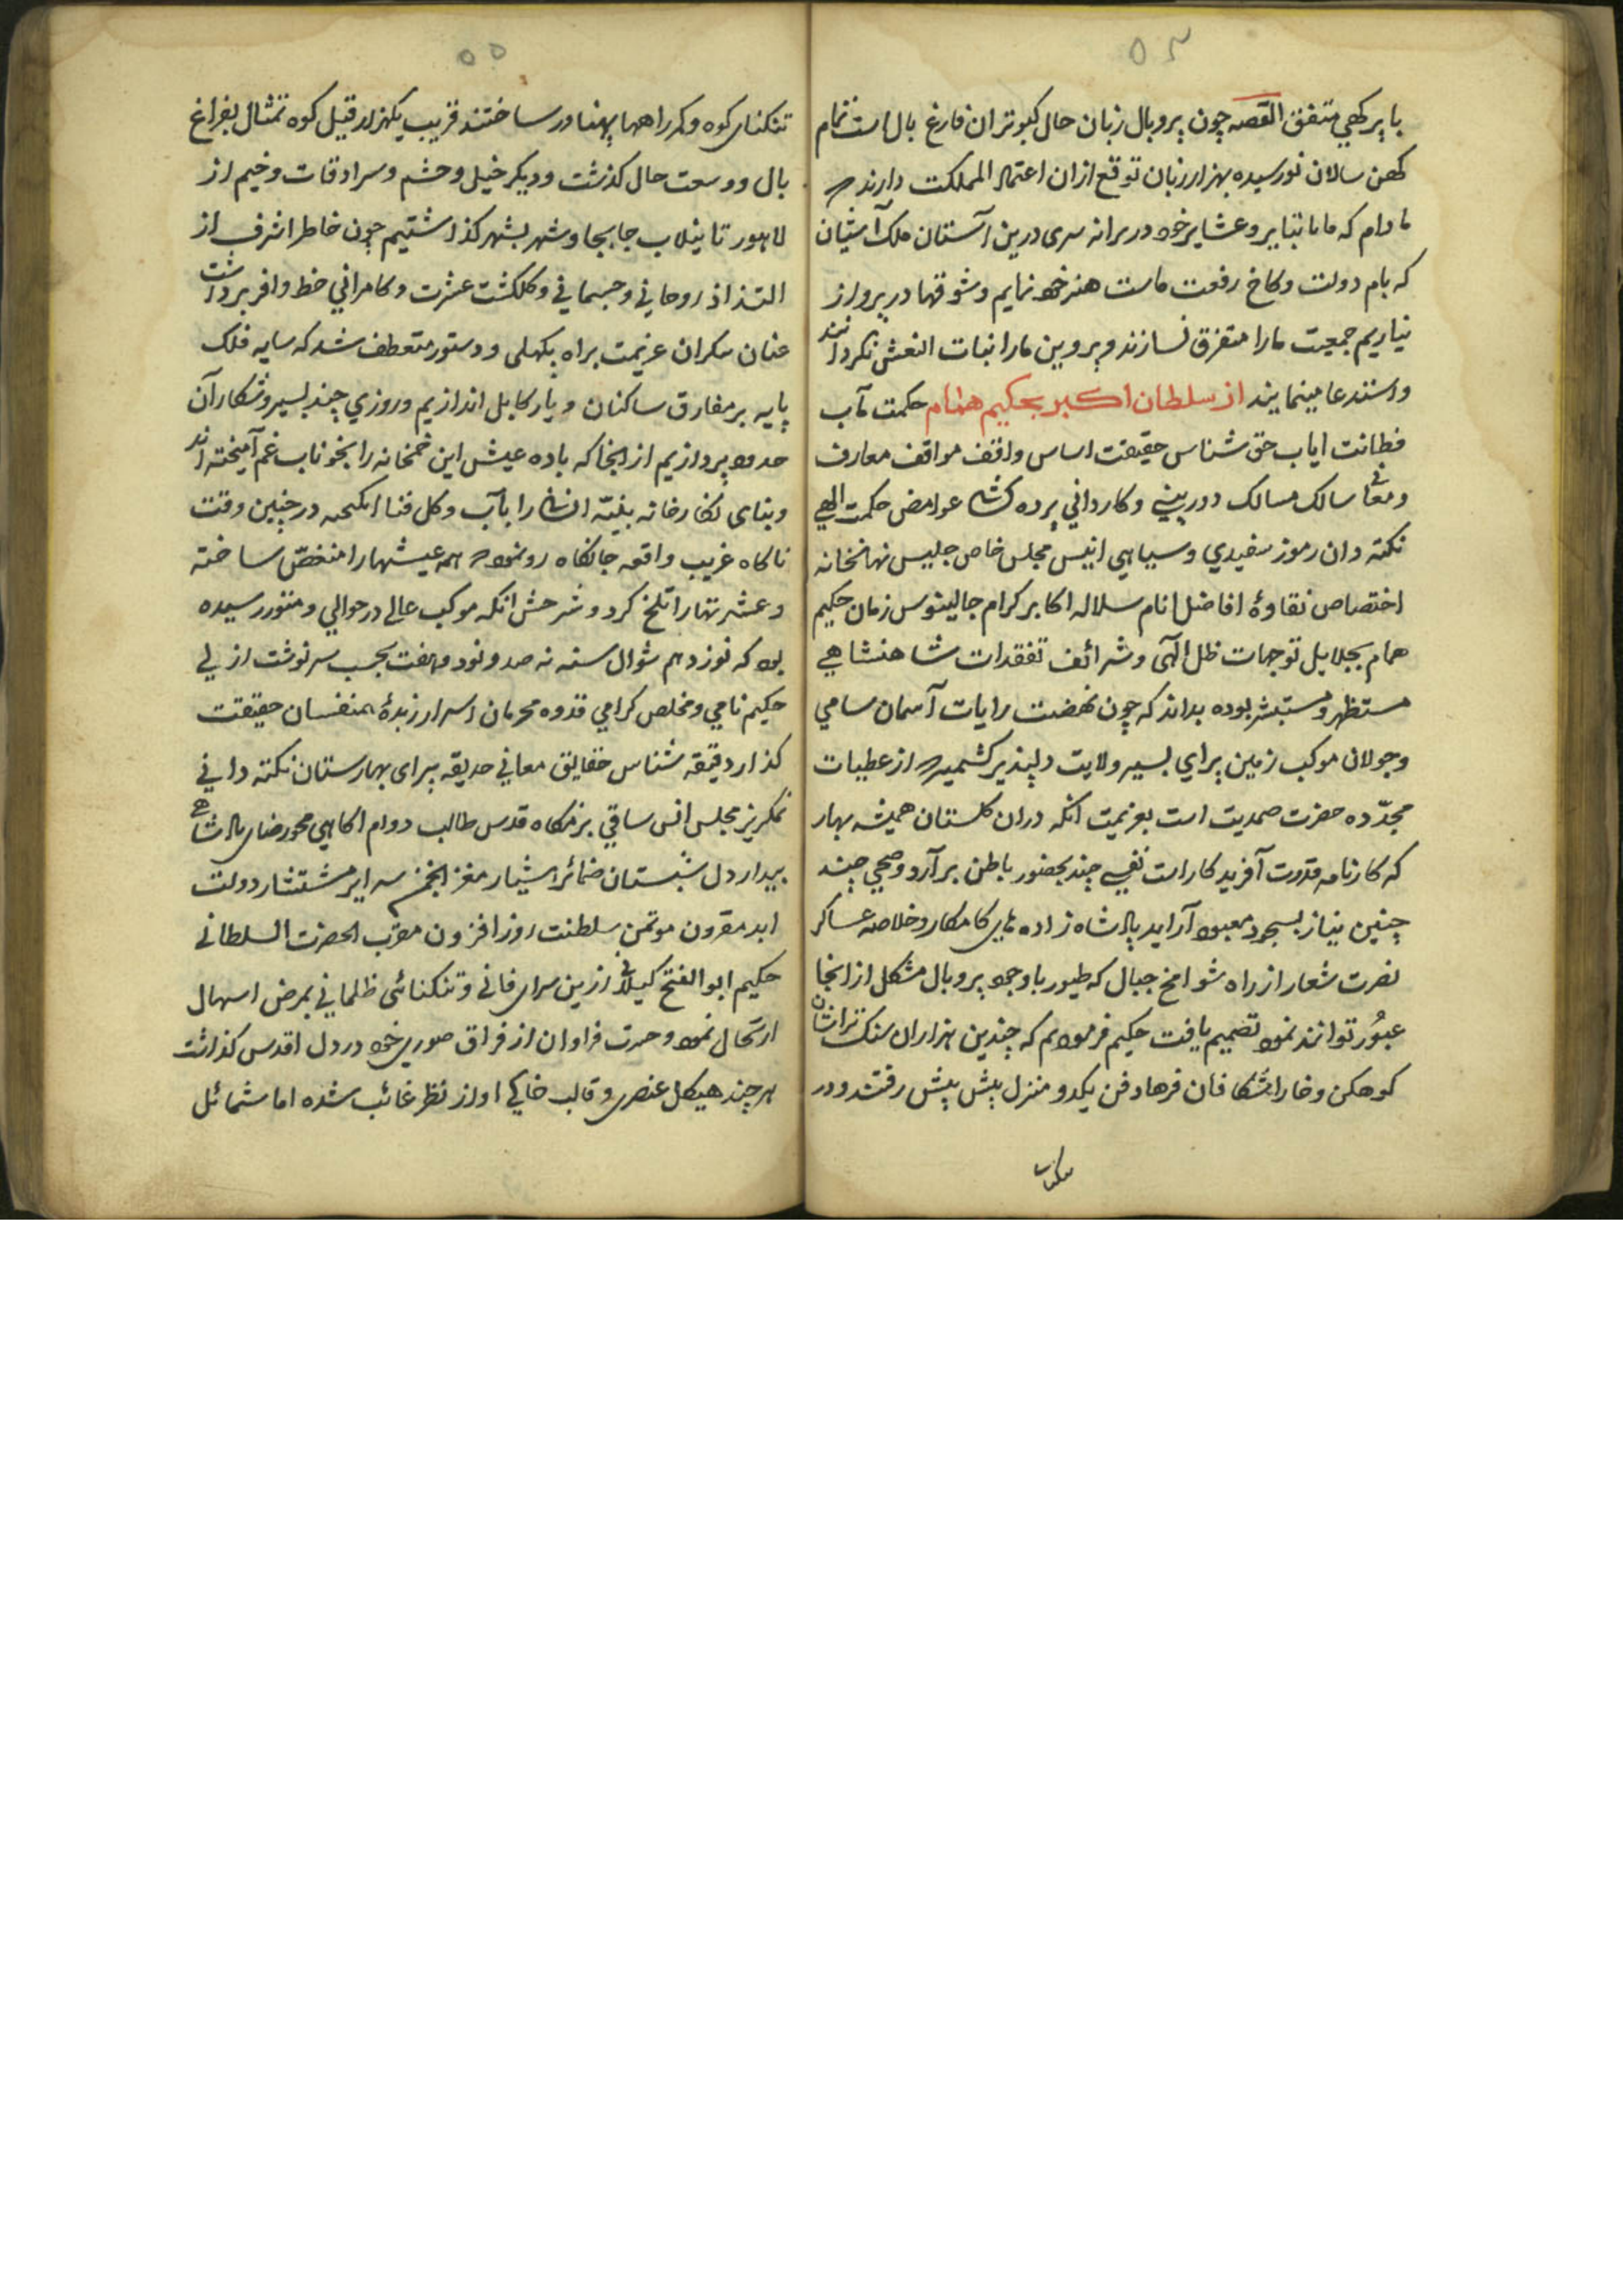 ۵۴
با پرکهي متفق القصه چون پر و بال زبان حال کبوتران فارغ بال است تمام
کهن سالان نورسیده بهزار زبان توقع ازان اعتماد المملکت دارند
مادام که ما با نبایر و عشایر خود در برانه سری درین آستان ملک آشیان
که بام دولت و کاخ رفعت ماست هنر خود نمایم و شوقها در پرواز
نیاریم جمعیت مارا متفرق نسازند و پروین مارا نبات النعش نکردانند
و استدعا مینمایند از سلطان اکبر بحکیم همام حکمت مآب
فطانت ایاب حق شناس حقیقت اساس واقف مواقف معارف
و معانی سالک مسالک دوربینی و کاردانی پرده کشای غوامض حکمت الهي
نکته دان رموز سفیدي و سیاهي انیس مجلس خاص جلیس نهانخانه
اختصاص نقاوهٔ افاضل انام سلاله اکابر کرام جالینوس زمان حکیم
همام بجلایل توجهات ظل الهی و شرائف تفقدات شاهنشاهي
مستظهر و مستبشر بوده بداند که چون نهضت رایات آسمان سامي
و جولان موکب زمین پراي بسیر ولایت دلپذیر کشمیر از عطیات
مجدّده حضرت صمدیت است بعزیمت انکه دران کلستان همیشه بهار
که کارنامه قدرت آفریدکار است نفسي چند بحضور باطن برآرد و صبحي چند
جبین نیاز بسجود معبود آراید پادشاه زاده های کامکار و خلاصه عساکر
نصرت شعار از راه شوامخ جبال که طیور با وجود پر و بال مشکل ازانجا
عبُور توانند نمود تصمیم یافت حکیم فرمودیم که چندین هزاران سنک تراشان
کوهکن و خارا شکافان فرهاد فن یکدو منزل پیش پیش رفتند و در
۵۵
تنکنای کوه و کمر راهها پهناور ساختند قریب یکهزار قیل کوه تمثال بفراغ
بال و وسعت حال کذشت و دیکر خیل و حشم و سرادقات و خیم از
لاهور تا نیلاب جا بجا و شهر بشهر کذاشتیم چون خاطر اشرف از
التذاذ روحاني و جسماني و کلکشت عشرت و کامراني حظ وافر برداشت
عنان یکران عزیمت براه پکهلی و دستور متعطف شد که سایه فلک
پایه بر مفارق ساکنان دیار کابل اندازیم و روزي چند بسیر و شکار آن
حدود پردازیم ازانجا که باده عیش این خمخانه را بخوناب غم آمیخته اند
و بنای نکارخانه بنیّه انسان را بآب و کل فنا انکیخته در چنین وقت
ناکاه غریب واقعه جانکاه رو نمود همه عیشها را منغصّ ساخته
و عشرتها را تلخ کرد و شرحش انکه موکب عالی در حوالي دمنور رسیده
بود که نوزدهم شوال سنه نه صد و نود و هفت بحسب سرنوشت ازلي
حکیم نامي و مخلص کرامي قدوه محرمان اسرار زبدهٔ همنفسان حقیقت
کذار دقیقه شناس حقایق معاني حدیقه پیرای بهارستان نکته داني
نمکریز مجلس انس ساقي بزمکاه قدس طالب دوام اکاهي محو رضای پادشاهي
بیدار دل شبستان ضمائر هشیار مغز انجمن سرایر مستشار دولت
ابد مقرون موتمن سلطنت روز افزون مقرب الحضرت السلطاني
حکیم ابو الفتح کیلاني ازین سرای فاني و تنکنائی ظلماني بمرض اسهال
ارتحال نمود و حسرت فراوان از فراق صوری خود در دل اقدس کذاشت
هر چند هیکل عنصری و قالب خاکي او از نظر غائب شده اما شمائل